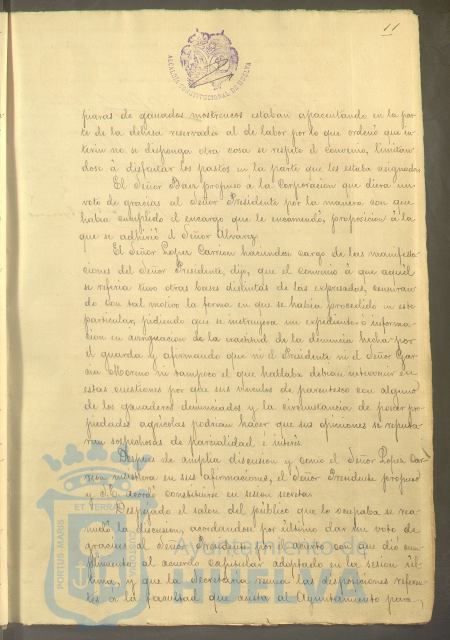 11
ALCALDÍA CONSTITUCIONAL DE HUELVA
piaras de ganados mostrencos estaban apacentando en la par-
te de la dehesa reservada al de labor por lo que ordenó que in-
terin no se disponga otra cosa se respete el convenio, limitán-
dose á disfrutar los pastos en la parte que les estaba asignada.
El Señor Baez propuso á la Corporacion que diera un
voto de gracias al Señor Presidente por la manera con que
habia cumplido el encargo que le encomendó, proposicion á la
que se adhirió el Señor Alvarez.
El Señor Lopez Carrion haciendose cargo de las manifesta-
ciones del Señor Presidente, dijo, que el convenio á que aquel
se referia tuvo otras bases distintas de las expresadas, censuran-
do con tal motivo la forma en que se habia procedido en este
particular, pidiendo que se instruyera un expediente ó informa-
cion en averiguacion de la exactitud de la denuncia hecha por
el guarda y afirmando que ni el Presidente ni el Señor Gar-
cia Morano ni tampoco el que hablaba debian intervenir en
estas cuestiones por que sus vínculos de parentesco con alguno
de los ganaderos denunciados y la circunstancia de poseer pro-
piedades agricolas podrian hacer que sus opiniones se reputa-
ran sospechosas de parcialidad é interés.
Despues de amplia discusion y como el Señor Lopez Car-
rion insistiera en sus afirmaciones, el Señor Presidente propuso
y S.E. acordó constituirse en sesion secreta.
Despejado el salon del público que lo ocupaba se rea-
nudó la discusion, acordandose por último dar un voto de
gracias al Señor Presidente por el acierto con que dió cum-
plimiento al acuerdo capitular adoptado en la sesion úl-
tima, y que la Secretaria reuna las disposiciones referen-
tes á la facultad que asista al Ayuntamiento para
PORTUS MARIS ET TERRAE CUSTODIA
Ayuntamiento de
HUELVA